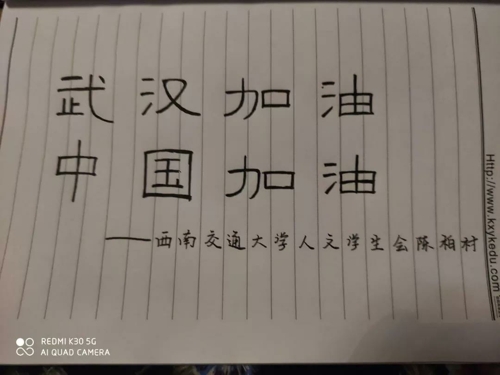 武汉加油
中国加油
——西南交通大学人文学生会陈柏村
Http://www.kxykedu.com
REDMI K30 5G
AI QUAD CAMERA